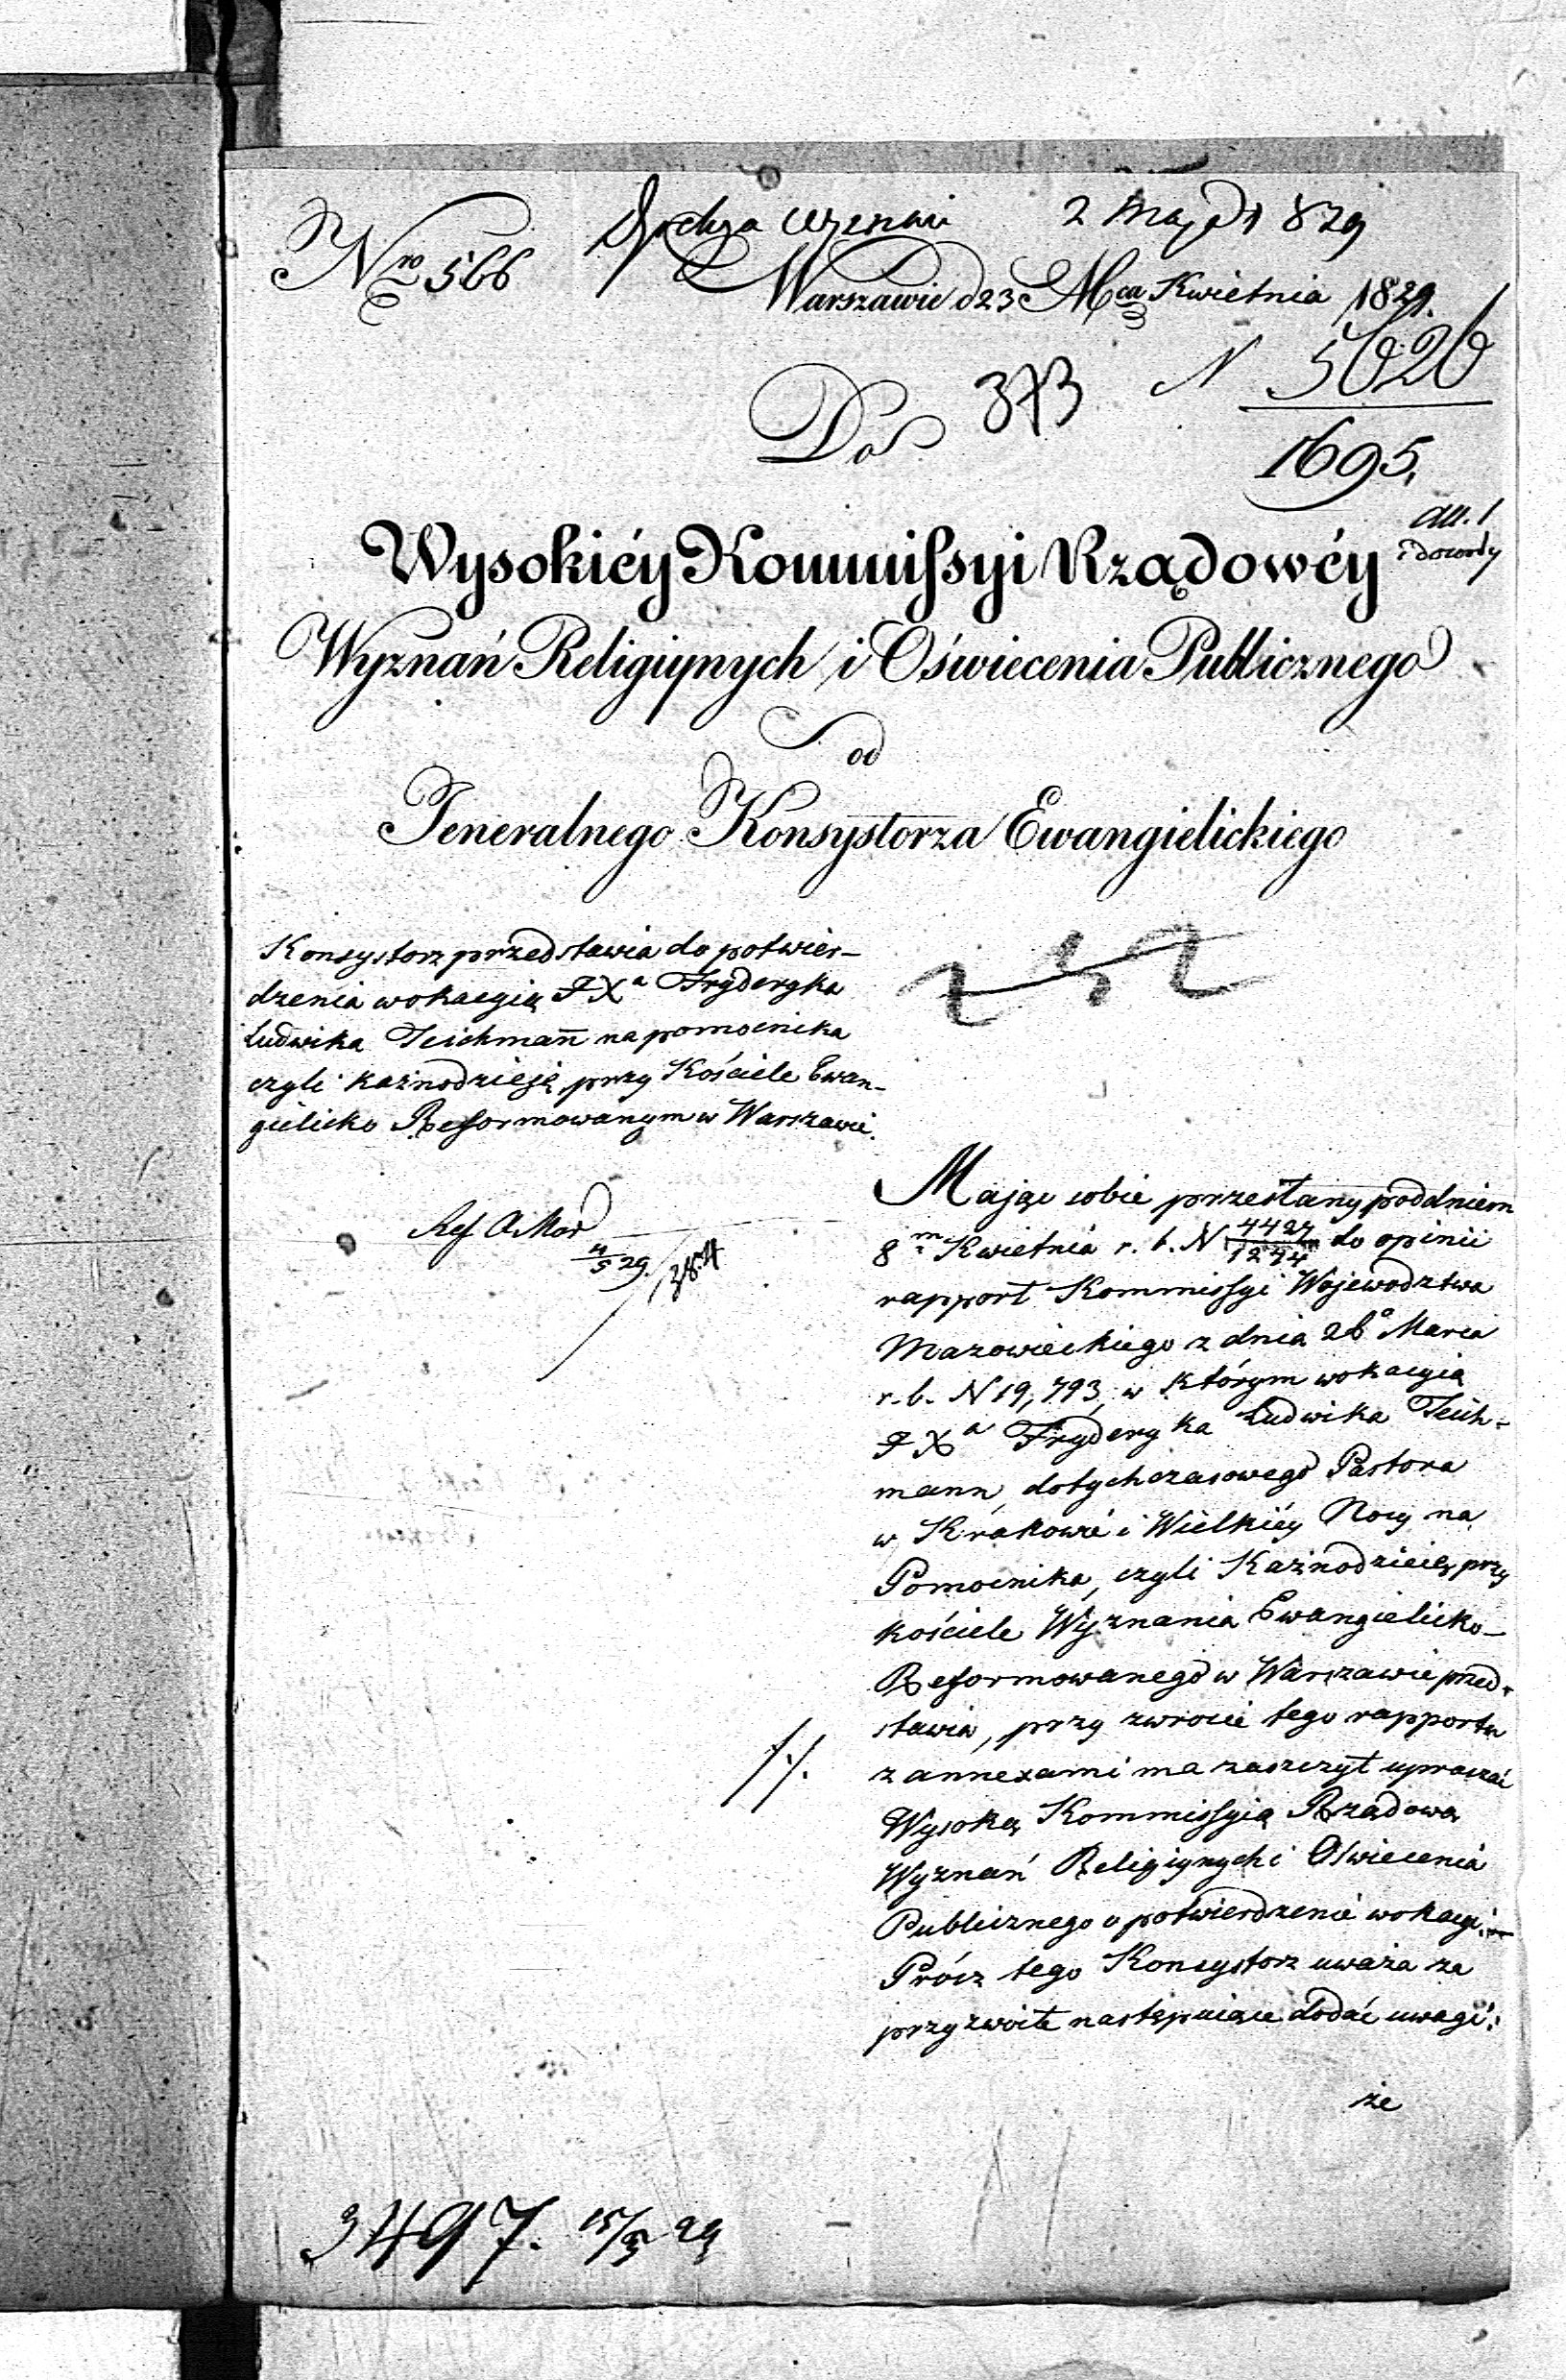 2 Maja 1829
Nro 566
Warszawie d 23 Mca Kwietnia 1829.
N 5626
1695.
Do
373
all. 1
i dowody
Wysokiéy Kommißyi Rządowéy
Wyznań Religiynych i Oświecenia Publicznego
od
Jeneralnego Konsystorza Ewangielickiego
Konsystorz przedstawia do potwier-
dzenia wokacyią JXa Fryderyka
Ludwika Teichmann na pomocnika
czyli kaznodzieję przy Kościele Ewan-
gielicko Reformowanym w Warszawie.
Ref
4/5 29.
384
Maiąc sobie przesłany pod dniem
8m Kwietnia r. b. N 4427/1274 do opinii
rapport Kommißyi Województwa
Mazowieckiego z dnia 26o Marca
r. b. N 19,793, w którym wokacyią
JXa Fryderyka Ludwika Teich-
mann, dotychczasowego Pastora
w Krakowie i Wielkiéy Nocy na
Pomocnika, czyli Kaznodzieię przy
kościele Wyznania Ewangielicko-
Reformowanego w Warszawie przed-
stawia, przy zwrocie tego rapportu
z annexami ma zaszczyt upraszać
Wysoką Kommißyią Rządową
Wyznań Religiynych i Oświecenia
Publicznego o potwierdzenie wokacyi.
Prócz tego Konsystorz uważa za
przyzwoite następuiące dodać uwagi:
że
3497. 15/5 29